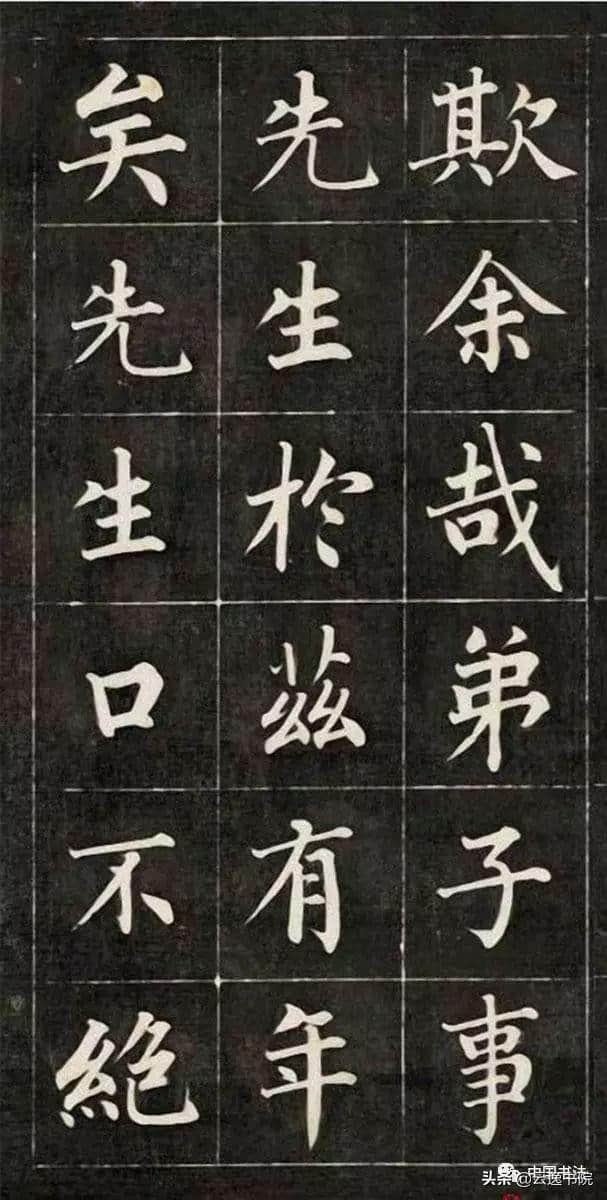 欺余哉弟子事
先生於茲有年
矣先生口不絕
中国书法
头条@云逸书院